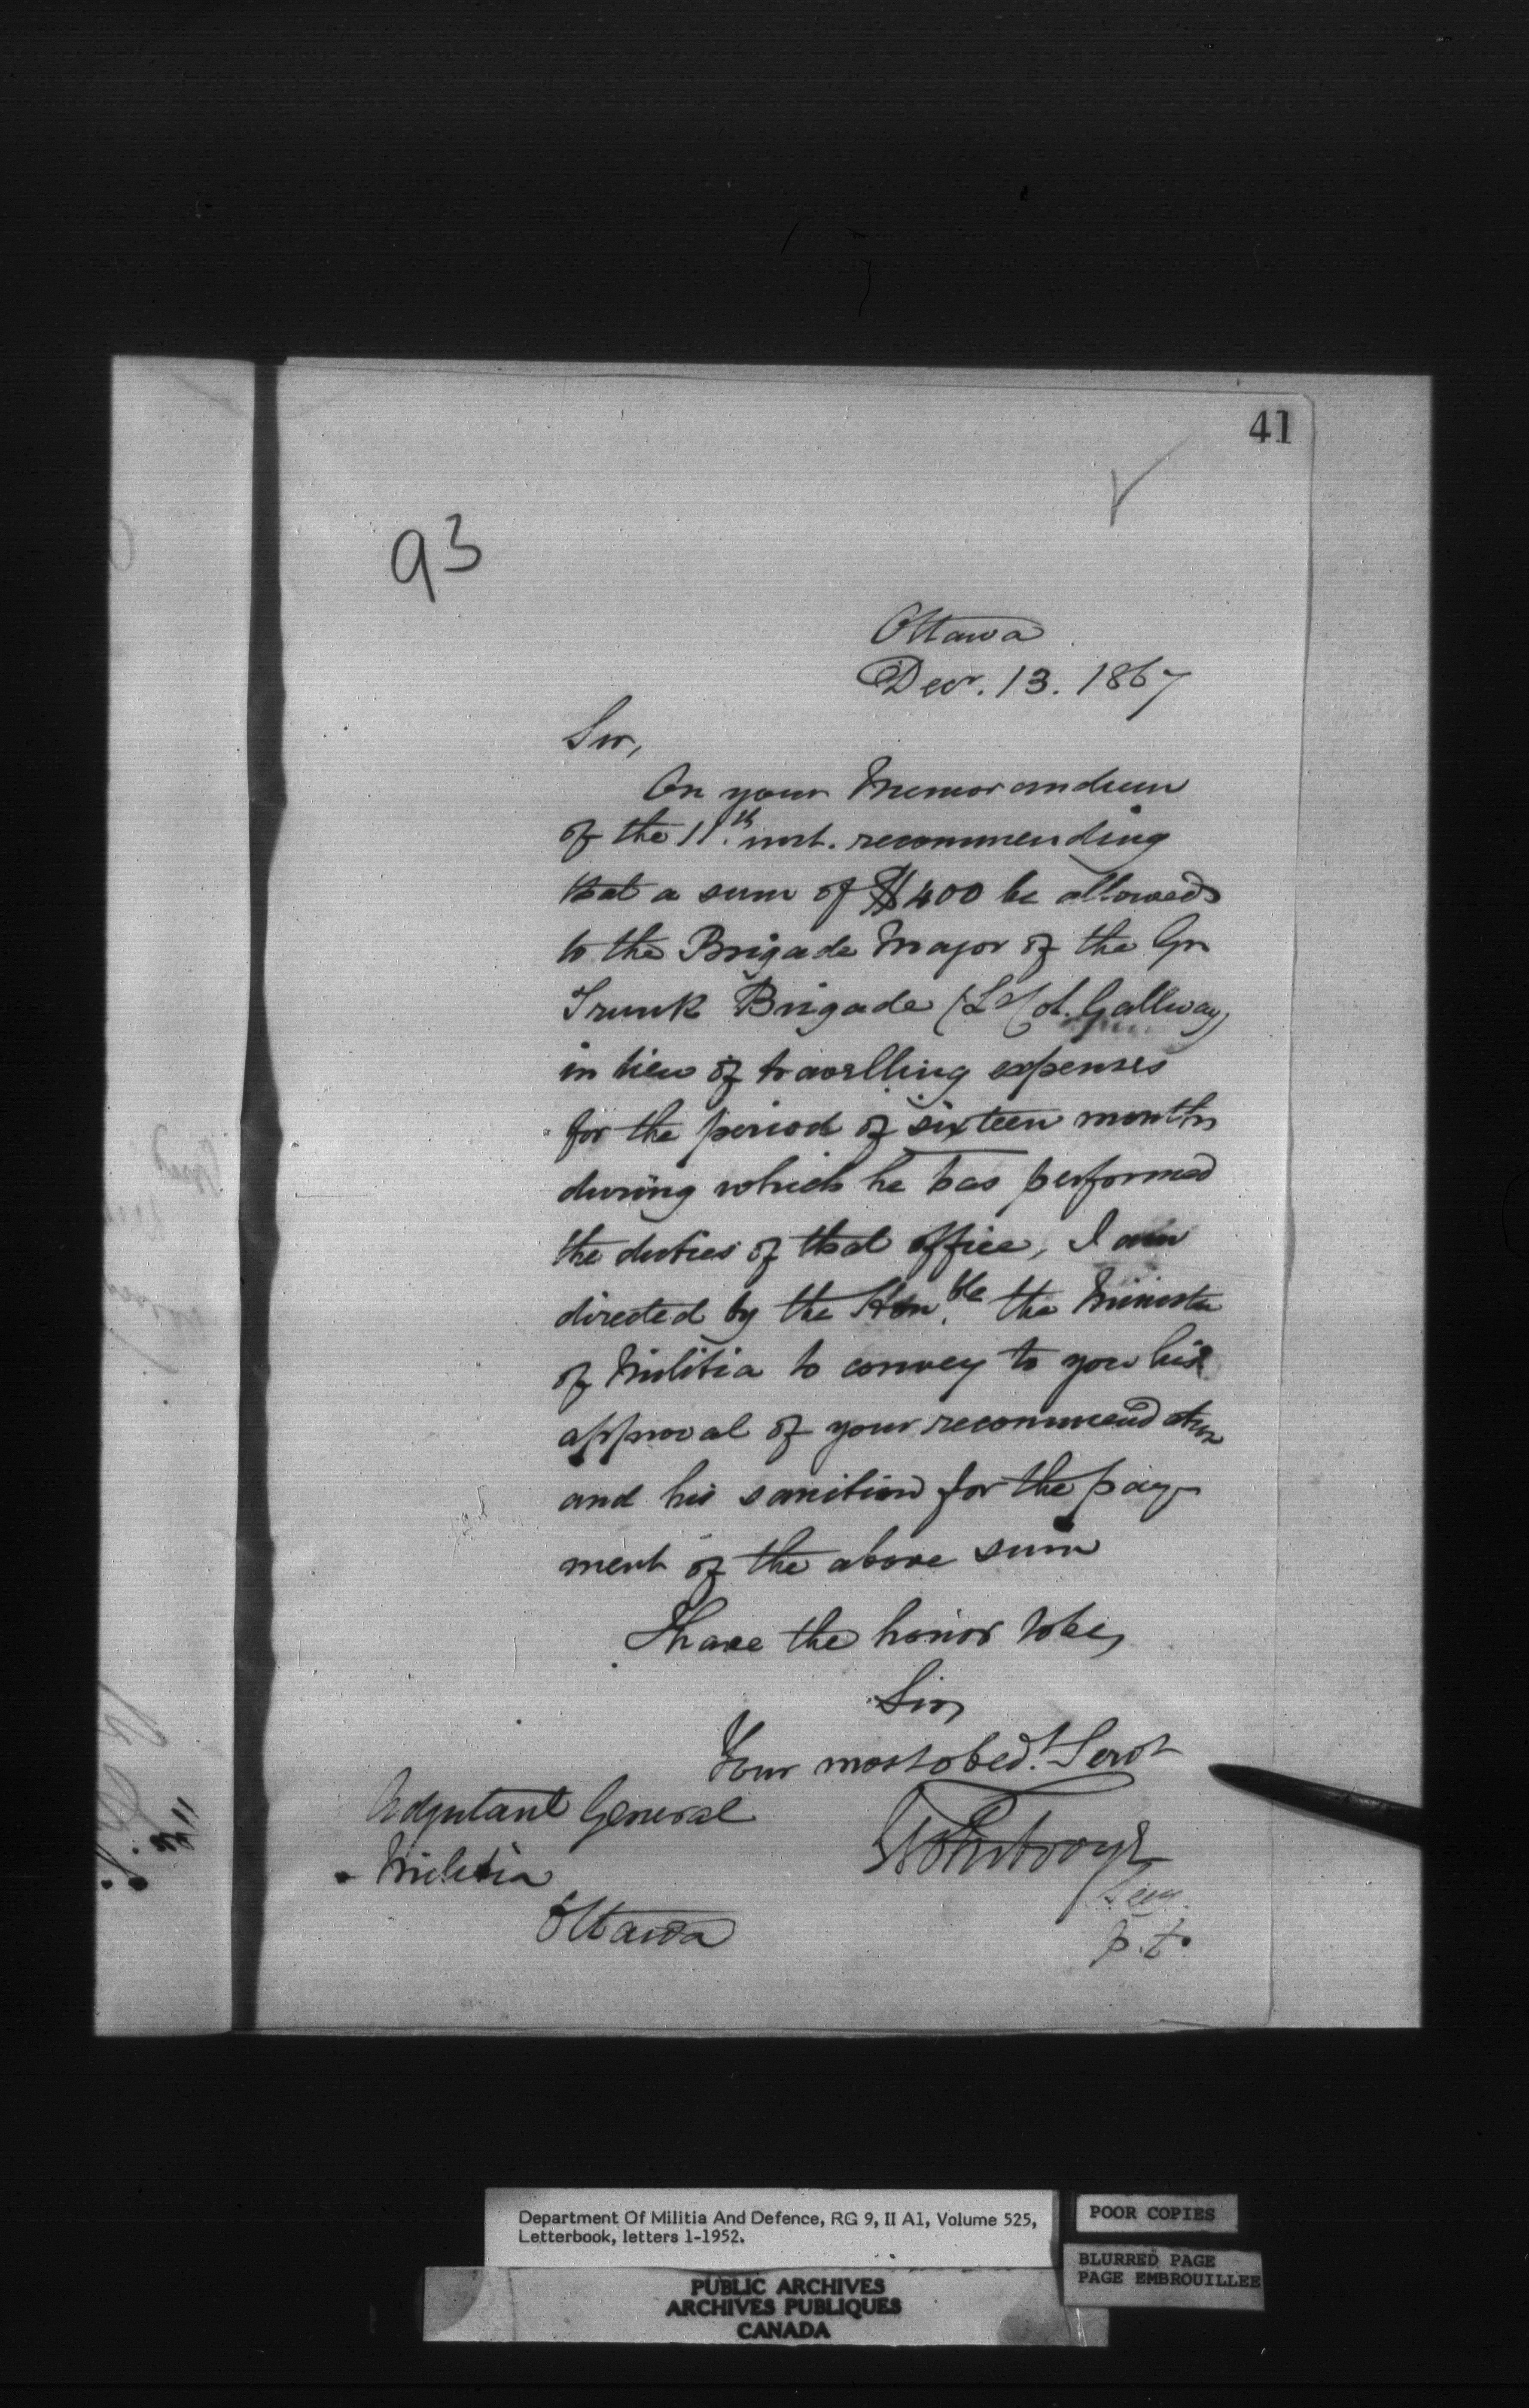 41
93
Ottawa
Decr. 13. 1867
Sir,
On your Memorandum
of the 11th. inst. recommending
that a sum of $400 be allowed
to the Brigade Major of the Gr
Trunk Brigade (Lt Col. Gallway)
in lieu of travelling expenses
for the period of sixteen months
during which he has performed
the duties of that office, I am
directed by the Hon.ble the Minister
of Militia to convey to you his
approval of your recommendation
and his sanction for the pay-
ment of the above sum
I have the honor to be,
Sir,
Your most obedt. Servt
Adjutant General
Militia
Ottawa
p.t.
Department Of Militia And Defence, RG 9, II A1, Volume 525,
Letterbook, letters 1-1952.
POOR COPIES
BLURRED PAGE
PAGE EMBROUILLEE
PUBLIC ARCHIVES
ARCHIVES PUBLIQUES
CANADA